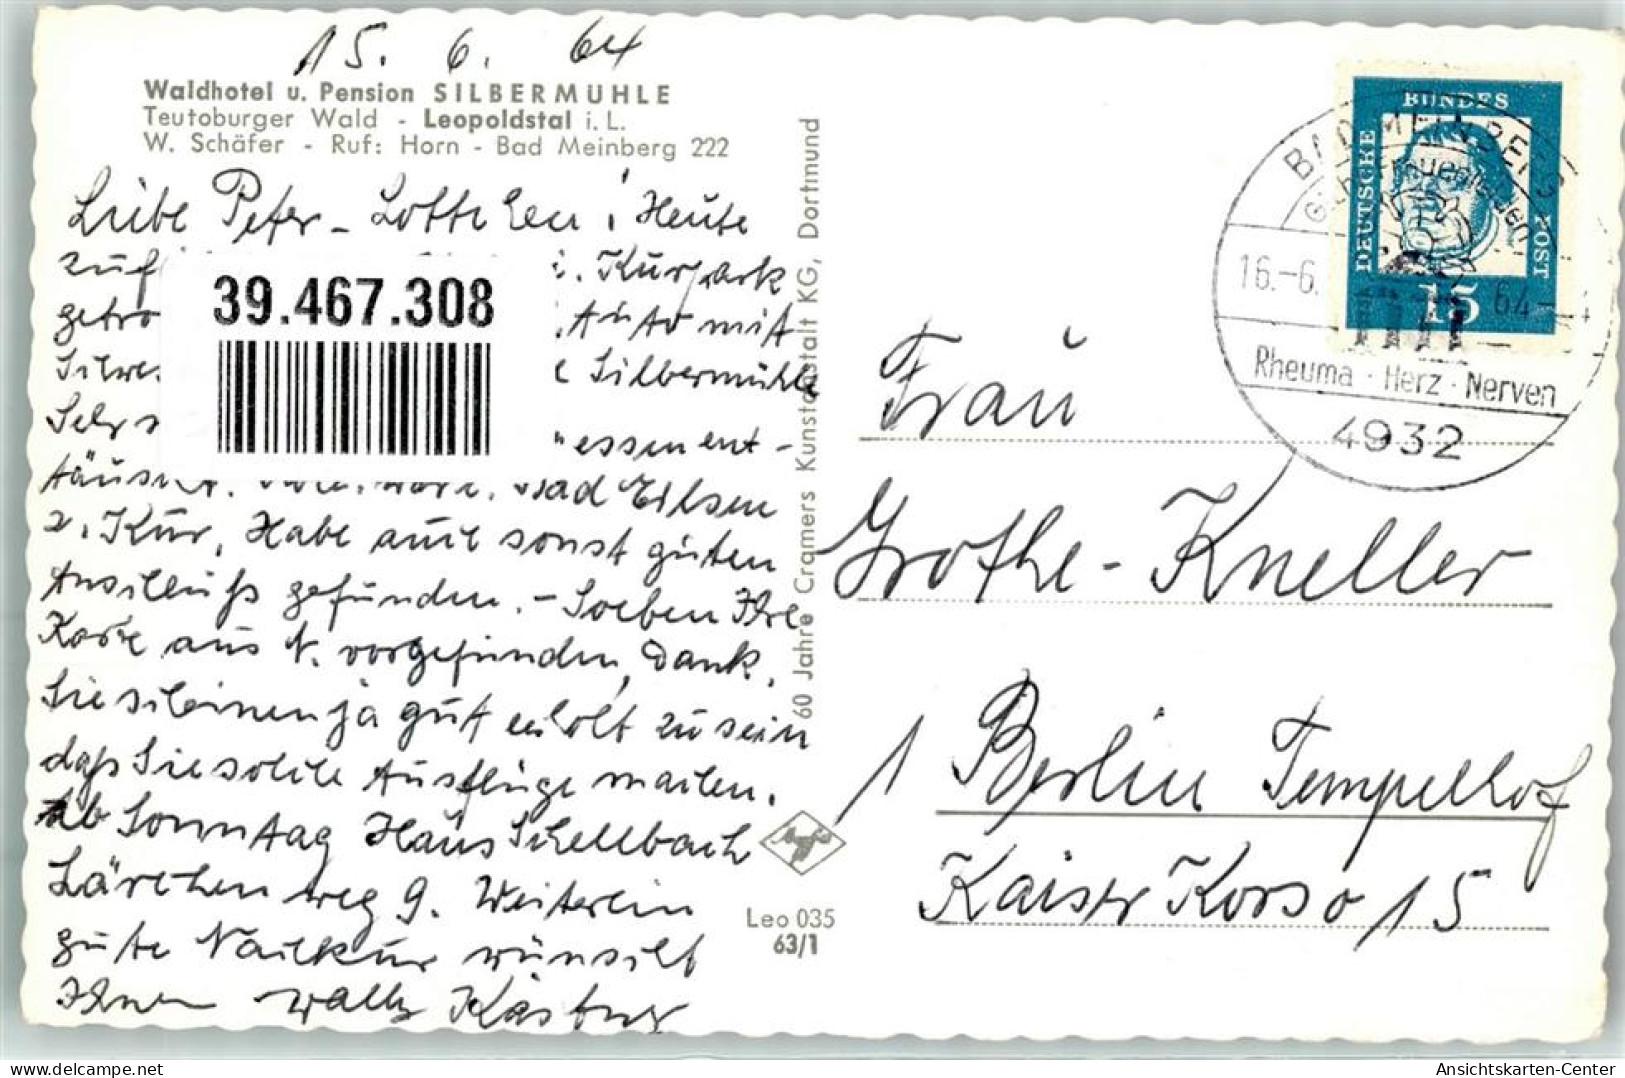 15. 6. 64
Waldhotel u. Pension SILBERMÜHLE
Teutoburger Wald - Leopoldstal i. L.
W. Schäfer - Ruf: Horn - Bad Meinberg 222
Liebe Peter - Lotte! Heute
zuf i. Kurpark
getro Auto mit
Silbermühle
Sehr essen ent-
täuscht. Bad Eilsen
z. Kur, Habe auch sonst guten
Anschluß gefunden. - Soeben Ihre
Karte aus N. vorgefunden, Dank.
Sie scheinen ja gut erholt zu sein
daß Sie solche Ausflüge machen.
Ab Sonntag Haus Schellbach
Lärchenweg 9. Weiterhin
gute Nachkur wünscht
Ihnen Wally Kästner
39.467.308
60 Jahre Cramers Kunstanstalt KG, Dortmund
Agfa
Leo 035
63/1
DEUTSCHE BUNDESPOST
15
BAD MEINBERG
16.-6. 64-
Rheuma · Herz · Nerven
4932
Frau
Grothe-Kneller
1 Berlin Tempelhof
Kaiser Korso 15
Ansichtskarten-Center